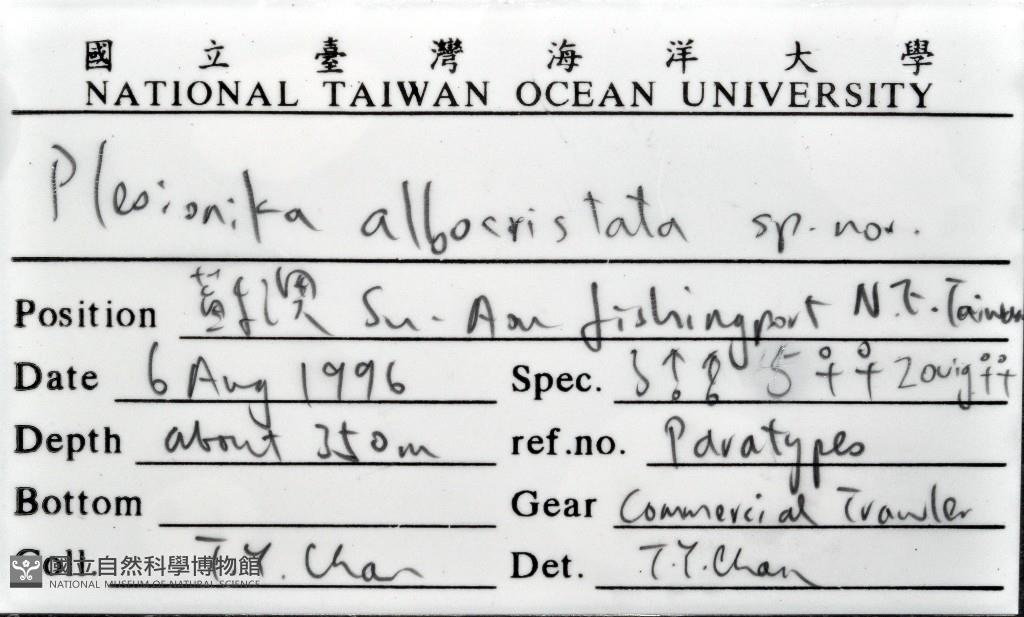 國立臺灣海洋大學
NATIONAL TAIWAN OCEAN UNIVERSITY
Plesionika albocristata sp. nov.
Position 蘇澳 Su-Aou fishing port N.E. Taiwan
Date 6 Aug 1996 Spec. 3♂♂ 5♀♀ 2ovig♀♀
Depth about 350m ref.no. Paratypes
Bottom Gear Commercial Trawler
Coll. T.Y. Chan Det. T.Y. Chan
國立自然科學博物館
NATIONAL MUSEUM OF NATURAL SCIENCE